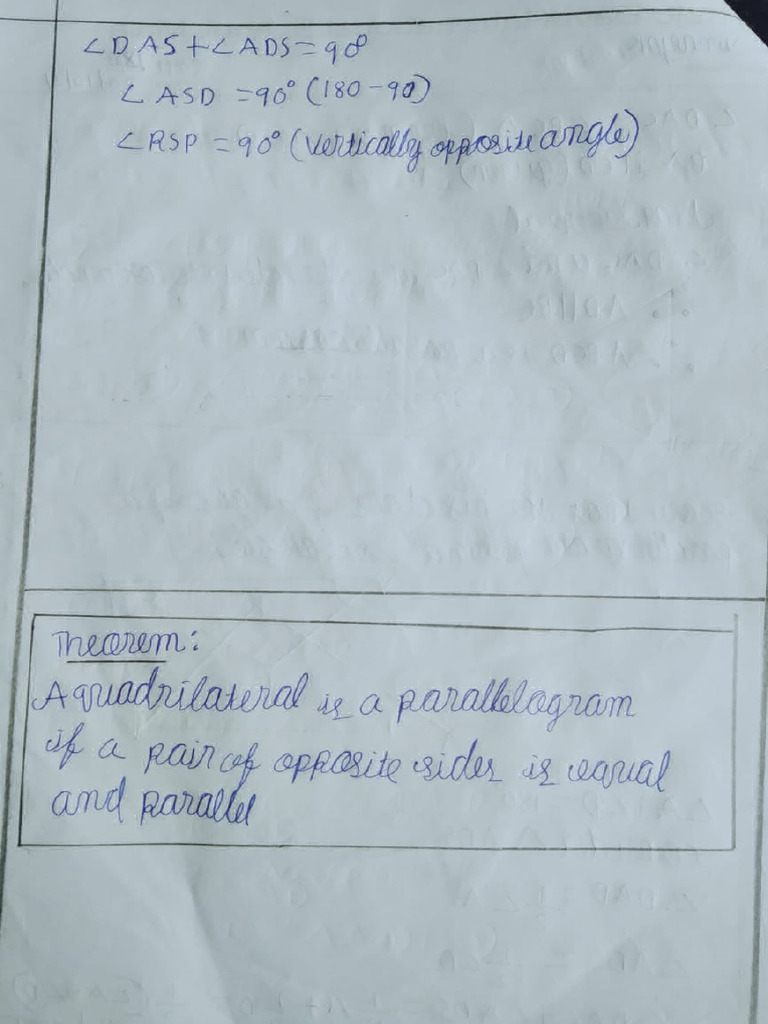 ∠DAS+∠ADS=90°
∠ASD =90° (180-90)
∠RSP =90° (vertically opposite angle)
Theorem:
A quadrilateral is a parallelogram
if a pair of opposite sides is equal
and parallel